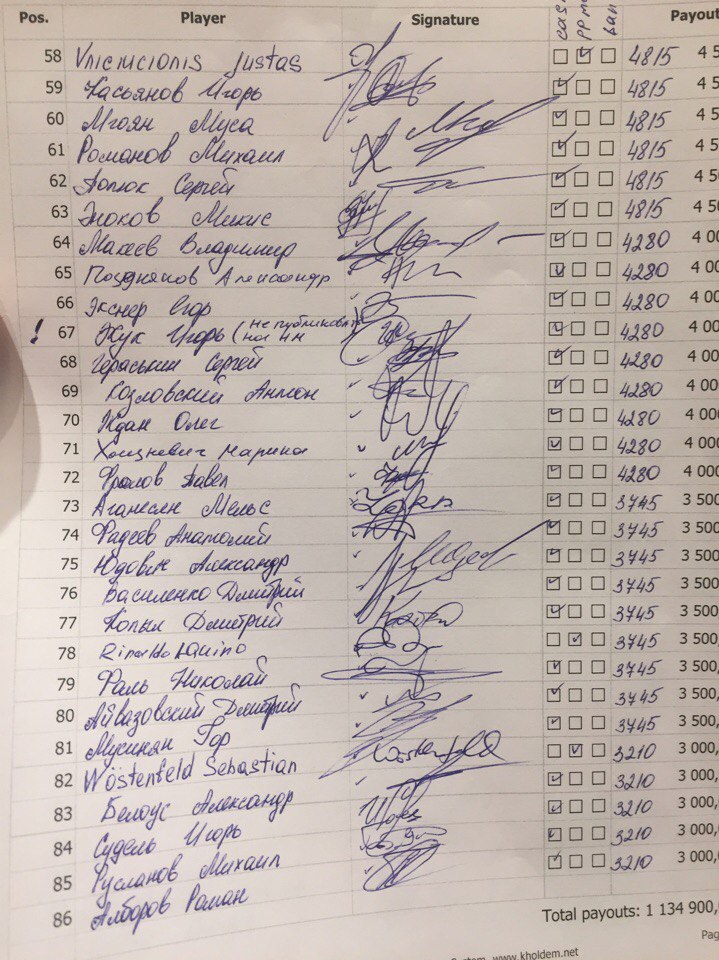 Pos. Player Signature cash Payou
58 Vniciucionis Justas 4815 4 5
59 Касьянов Игорь 4815 4 5
60 Мгоян Муса 4815 4 5
61 Романов Михаил 4815 4 5
62 Сергей 4815 4 5
63 Микис 4815 4 50
64 Макеев Владимир 4280 4 00
65 Поздняков Александр 4280 4 00
66 Экснер Егор 4280 4 00
! 67 Жук Игорь (не публиковать на 4280 4 00
68 Гераськин Сергей 4280 4 00
69 Козловский Антон 4280 4 00
70 Ждан Олег 4280 4 00
71 Марина 4280 4 00
72 Фролов Павел 4280 4 00
73 Аганесян Мельс 3745 3 50
74 Фадеев Анатолий 3745 3 500
75 Юдович Александр 3745 3 500
76 Василенко Дмитрий 3745 3 500
77 Копыл Дмитрий 3745 3 500
78 Rinaldo 3745 3 500
79 Фаль Николай 3745 3 500,
80 Айвазовский Дмитрий 3745 3 500,
81 Мусинян Гор 3745 3 500,
82 Wöstenfeld Sebastian 3210 3 000,
83 Белоус Александр 3210 3 000,
84 Судель Игорь 3210 3 000,
85 Русланов Михаил 3210 3 000,
86 Алборов Роман 3210 3 000,
Total payouts: 1 134 900,
Pag
System, www.kholdem.net